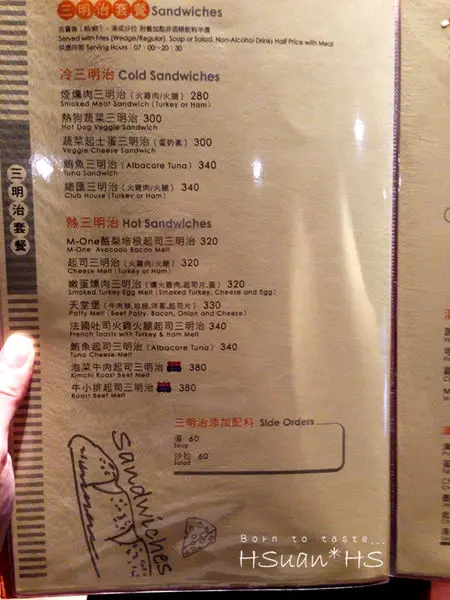 三明治套餐 Sandwiches
Served with Fries (Wedge/Regular), Soup or Salad, Non-Alcohol Drinks Half Price with Meal
供應時間 Serving Hours : 07 : 00~20 : 30
冷三明治 Cold Sandwiches
煙燻肉三明治 (火雞肉/火腿) 280
Smoked Meat Sandwich (Turkey or Ham)
熱狗蔬菜三明治 300
Hot Dog Veggie Sandwich
蔬菜起士蛋三明治 (蛋奶素) 300
Veggie Cheese Sandwich
鮪魚三明治 (Albacore Tuna) 340
Tuna Sandwich
總匯三明治 (火雞肉/火腿) 340
Club House (Turkey or Ham)
熱三明治 Hot Sandwiches
M-One酪梨培根起司三明治 320
M-One Avocado Bacon Melt
起司三明治 (火雞肉/火腿) 320
Cheese Melt (Turkey or Ham)
嫩蛋燻肉三明治 (燻火雞肉,起司片,蛋) 320
Smoked Turkey Egg Melt (Smoked Turkey, Cheese and Egg)
天堂堡 (牛肉餅,培根,洋蔥,起司片) 330
Patty Melt (Beef Patty, Bacon, Onion and Cheese)
法國吐司火雞火腿起司三明治 340
French Toasts with Turkey & Ham Melt
鮪魚起司三明治 (Albacore Tuna) 340
Tuna Cheese Melt
泡菜牛肉起司三明治 380
Kimchi Roast Beef Melt
牛小排起司三明治 380
Roast Beef Melt
三明治添加配料 Side Orders
湯 60
Soup
沙拉 60
Salad
三明治套餐
Sandwiches
Born to taste...
HSuan*HS